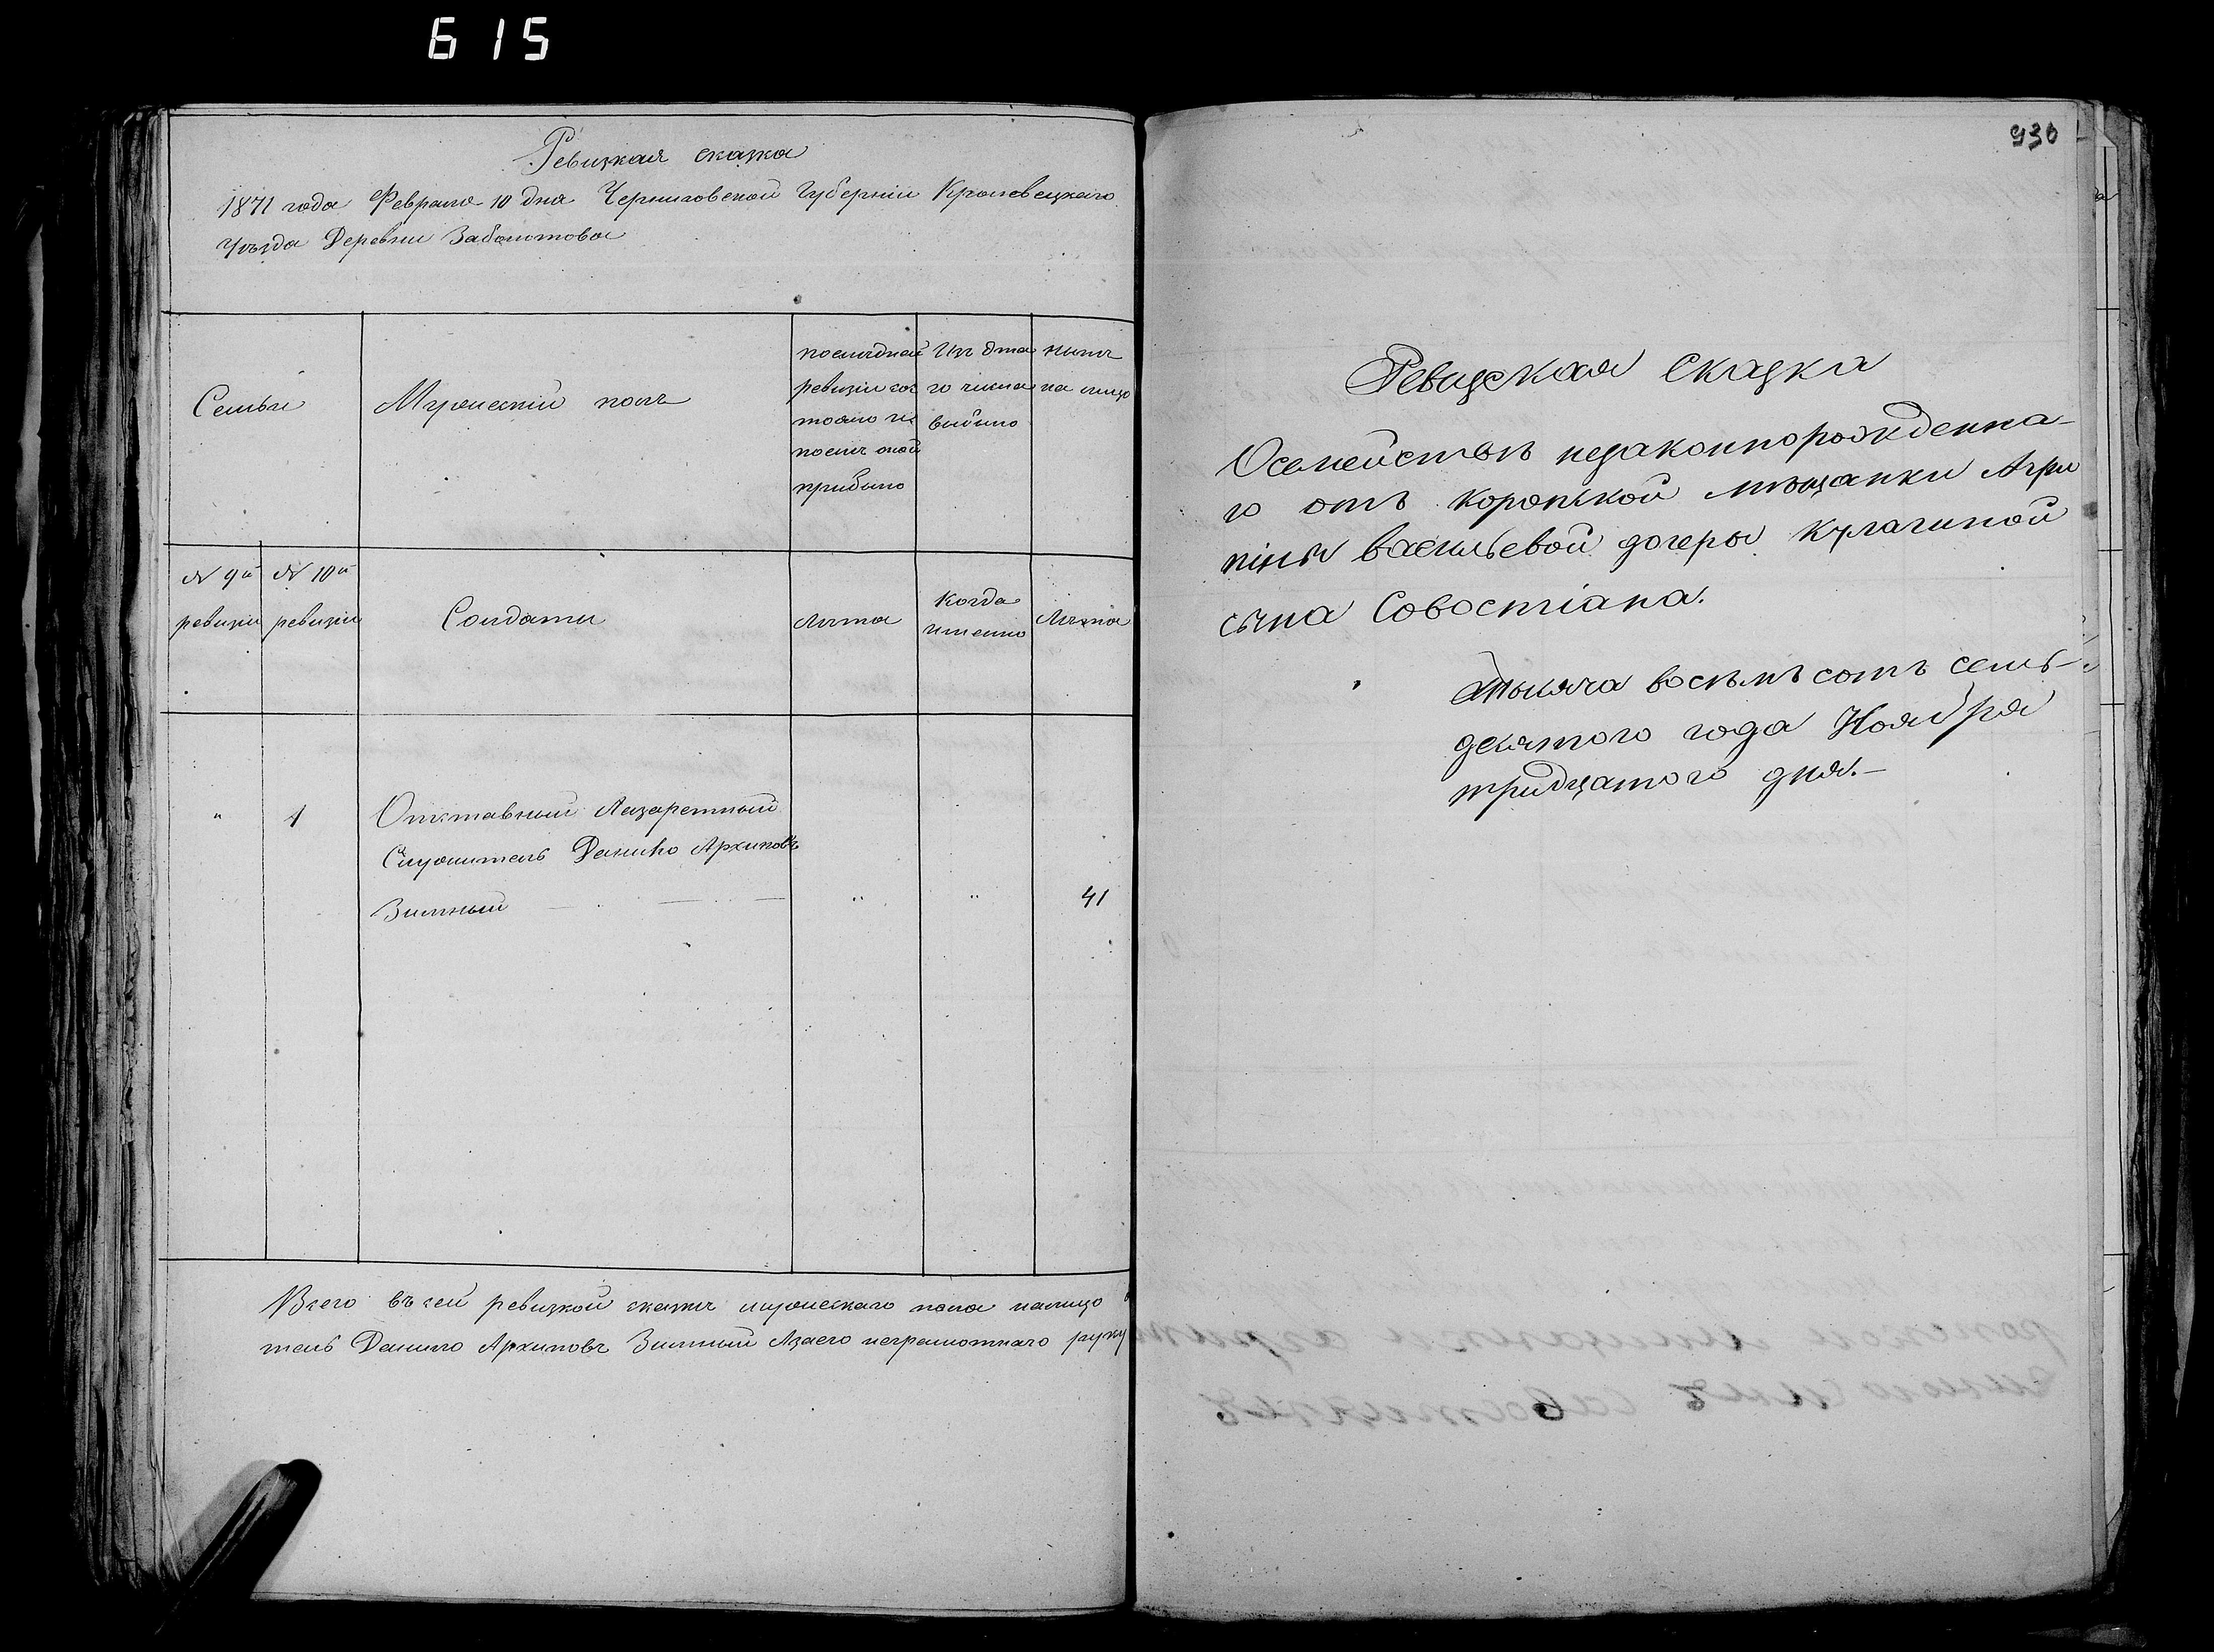 615
Ревизкая сказка
1871 года Февраля 10 дня Черниговской Губерніи Кролевецкаго
Уѣзда Деревни Заболотова
Семьи
Мужескій полъ
последней
ревизіи сос
тояло и
послѣ оной
прибыло
Изъ этa
го числа
выбыло
нынѣ
на лицо
N 9й
ревизіи
N 10й
ревизіи
Солдаты
Лѣта
Когда
имянно
Лѣта
" 1 Отставный Лазаретный
Служитель Данило Архиповъ
Зимный — " " 41
Всего въ сей ревизкой сказкѣ мужескаго пола налицо
тель Данило Архиповъ Зимный Азаего неграмотнаго руку
930
Ревизская Сказка
Осемействѣ незаконнорожденна-
го отъ коропской мѣщанки Агри
піны васильевой дочеры Кулагиной
сына Совостіана.
тысяча восѣмъ сотъ семь-
десятого года Ноября
тридцатого дня.—